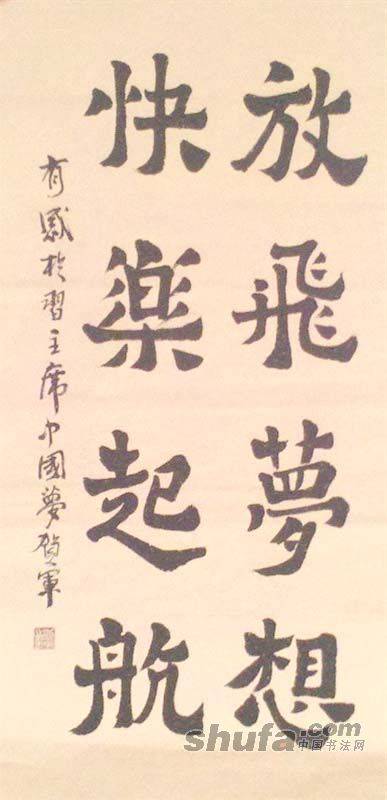 放飛夢想
快楽起航
有感於習主席中國夢賀軍
shufa.com
中国书法网